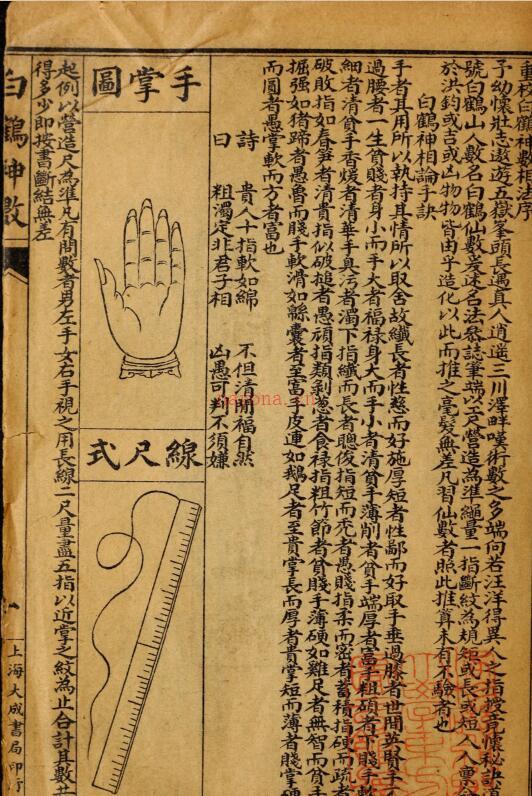 重校白鶴神數相法序
子幼懷壯志遨遊五嶽峯頭長遇真人逍遙三川澤畔嘆術數之多端向若汪洋得異人之指授竟懷秘訣真
號白鶴山人數名白鶴仙數爰述名法叅誌筆端以工尺營造為準繩量一指斷紋為規矩或長或短人人稟
於洪鈞或吉或凶物物皆由乎造化以此而推之毫髮無差凡習仙數者照此推算未有不驗者也
白鶴神相論手訣
手者其用所以執持其情所以取舍故纖長者性慈而好施厚短者性鄙而好取手垂過膝者世間英賢手
過腰者一生貧賤者身小而手大者福祿身大而手小者清貧手薄削者貧手端厚者富手粗硬者下賤手軟
細者清貧手香煖者清華手臭污者濁下指纖而長者聰俊指短而禿者愚賤指柔而密者蓄積指硬而疏者
破敗指如春笋者清貴指似破槌者愚頑指類剝葱者食祿指粗竹節者貧賤手薄硬如雞足者無智而貧手
掘强如猪蹄者愚魯而賤手軟滑如綿囊者至富手皮連如鵝足者至貴掌長而厚者貴掌短而薄者賤掌硬
而圓者愚掌軟而方者富也
詩曰
貴人十指軟如綿 不但清閒福自然
粗濁定非君子相 凶愚可判不須嫌
手掌圖
線尺式
起例以營造尺為準凡有問數者男左手女右手視之用長線二尺量盡五指以近掌之紋為止合計其數共
得多少即按書斷結無差
白鶴神數
一
上海大成書局印行